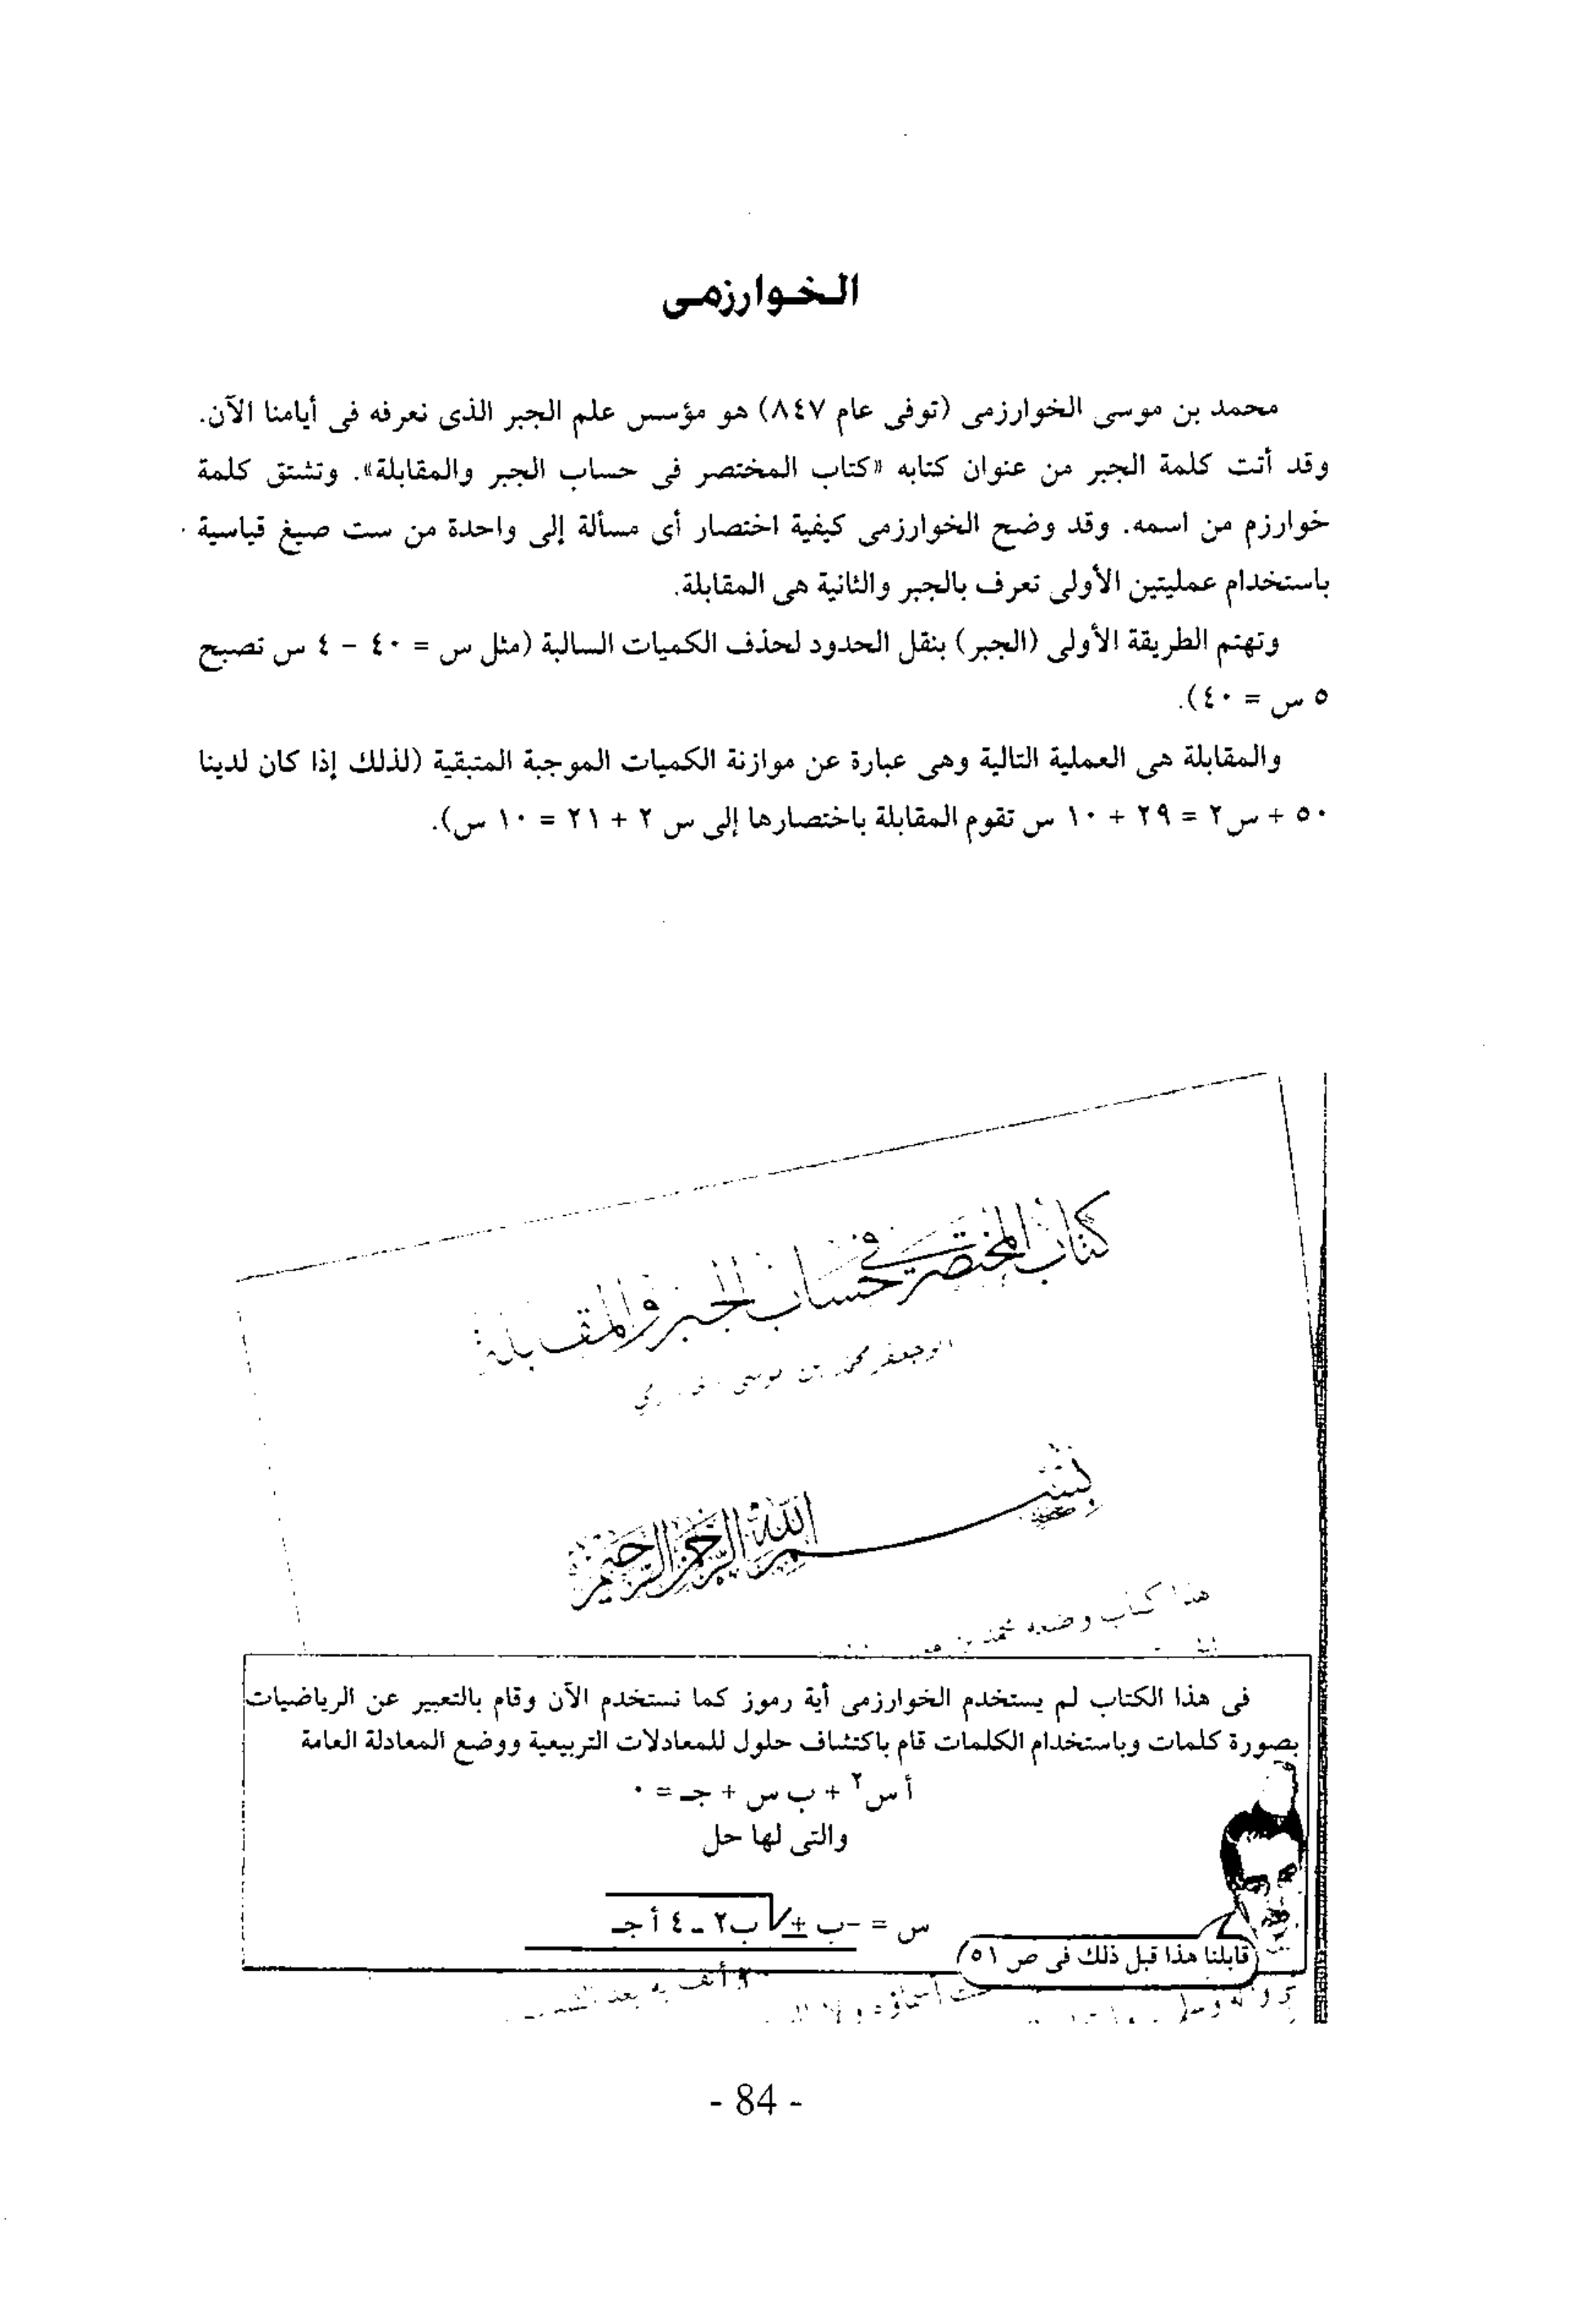 الخوارزمى
محمد بن موسى الخوارزمى (توفى عام ٨٤٧) هو مؤسس علم الجبر الذى نعرفه فى أيامنا الآن.
وقد أتت كلمة الجبر من عنوان كتابه «كتاب المختصر فى حساب الجبر والمقابلة». وتشتق كلمة
خوارزم من اسمه. وقد وضح الخوارزمى كيفية اختصار أى مسألة إلى واحدة من ست صيغ قياسية
باستخدام عمليتين الأولى تعرف بالجبر والثانية هى المقابلة.
وتهتم الطريقة الأولى (الجبر) بنقل الحدود لحذف الكميات السالبة (مثل س = ٤٠ – ٤ س تصبح
٥ س = ٤٠).
والمقابلة هى العملية التالية وهى عبارة عن موازنة الكميات الموجبة المتبقية (لذلك إذا كان لدينا
٥٠ + س٢ = ٢٩ + ١٠ س تقوم المقابلة باختصارها إلى س ٢ + ٢١ = ١٠ س).
كتاب المختصر في حساب الجبر والمقابلة
محمد بن موسى
بسم الله الرحمن الرحيم
هذا كتاب وضعه محمد بن
فى هذا الكتاب لم يستخدم الخوارزمى أية رموز كما نستخدم الآن وقام بالتعبير عن الرياضيات
بصورة كلمات وباستخدام الكلمات قام باكتشاف حلول للمعادلات التربيعية ووضع المعادلة العامة
أ س٢ + ب س + جـ = ٠
والتى لها حل
س = –ب ± √ ب٢ ـ ٤ أ جـ
قابلنا هذا قبل ذلك فى ص ٥١
- 84 -